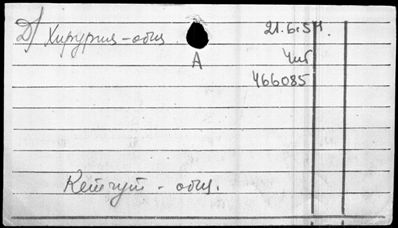 Д/ Хирургия - общ. 21.6.54.
А Чит
466085
Кетгут - общ.